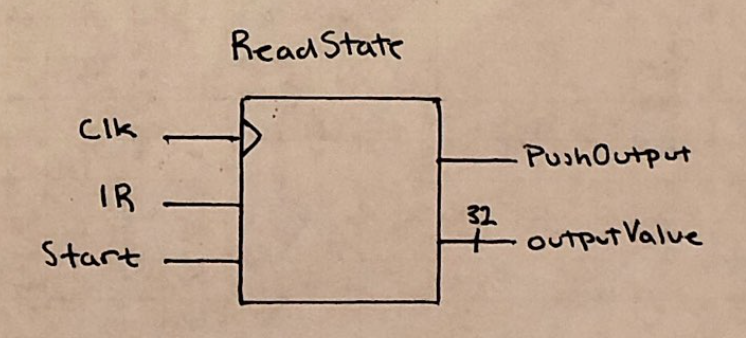 ReadState
Clk
IR
Start
PushOutput
32
outputValue